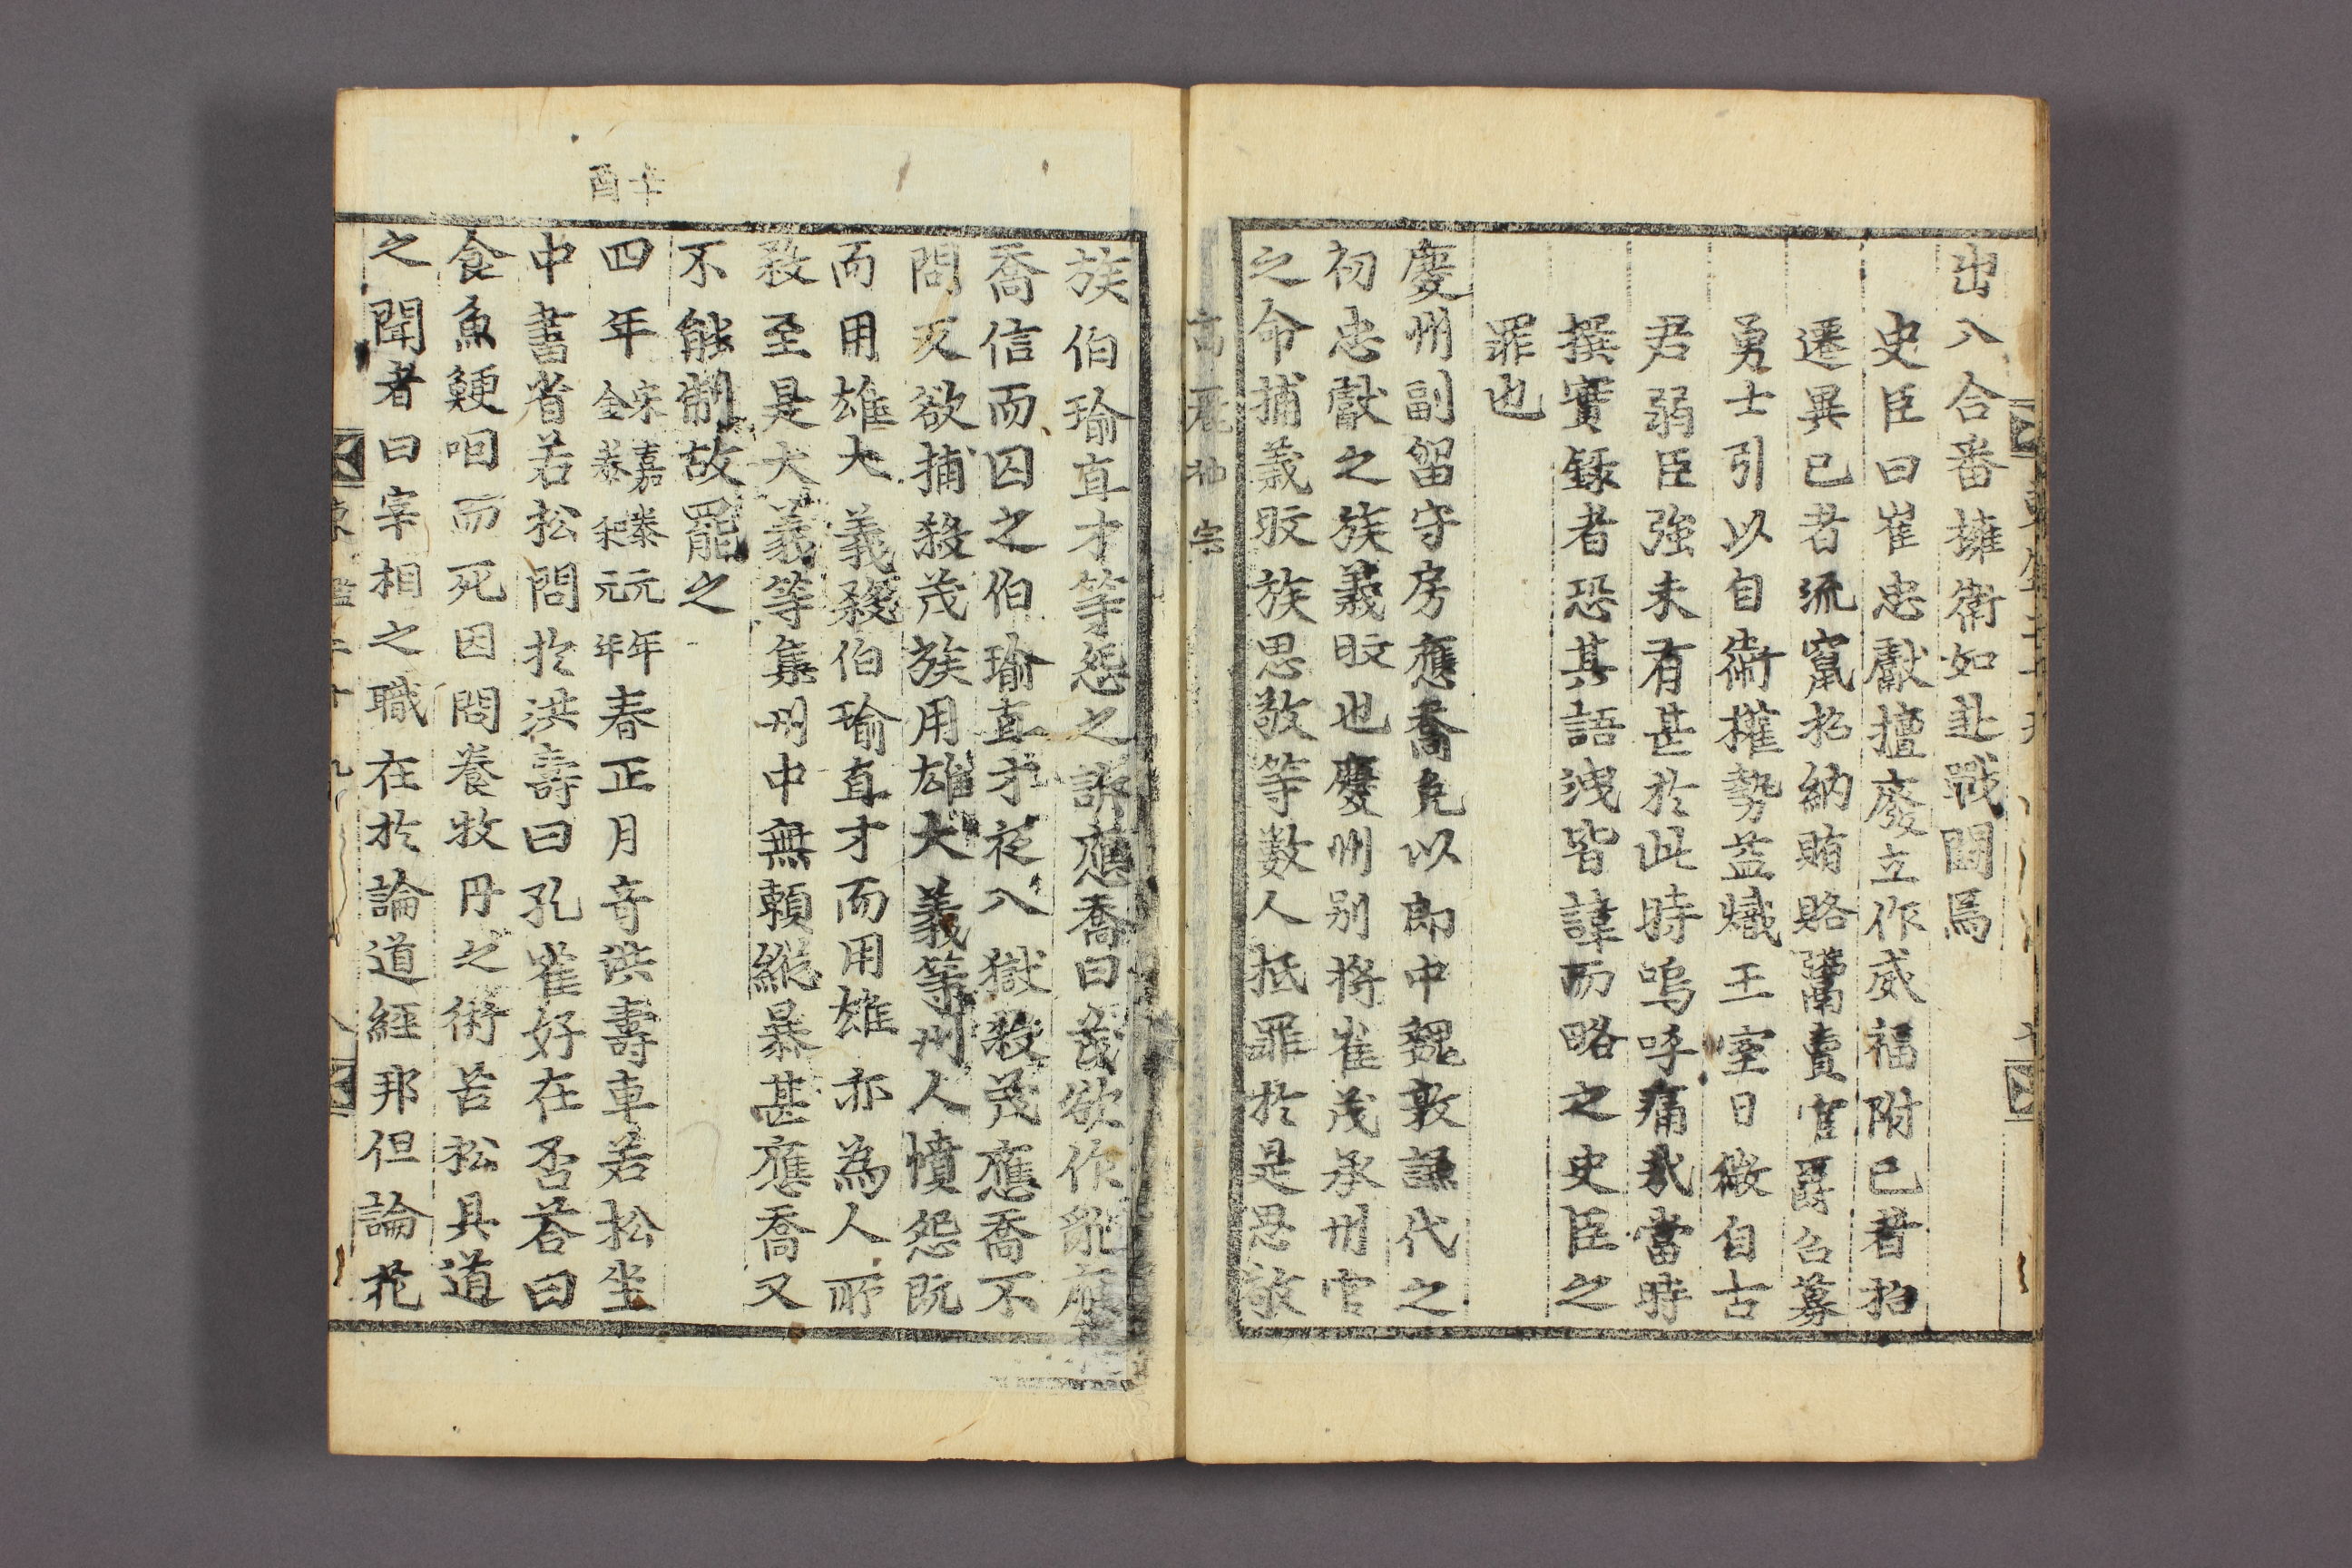 出入合番擁衛如赴戰鬪焉
史臣曰崔忠獻擅廢立作威福附已者招
遷異已者流竄招納賄賂鬻賣官爵召募
勇士引以自衛權勢益熾王室日微自古
君弱臣強未有甚於此時嗚呼痛哉當時
撰實錄者恐其語洩皆諱而略之史臣之
罪也
慶州副留守房應喬免以郎中魏敦謙代之
初忠獻之族義旼也慶州別將崔茂承州官
之命捕義旼族思敬等數人抵罪於是思敬
高麗神宗
族伯瑜直才等怨之訴應喬曰茂欲作亂應
喬信而囚之伯瑜直才夜入獄殺茂應喬不
問又欲捕殺茂族用雄大義等州人憤怨既
而用雄大義殺伯瑜直才而用雄亦為人所
殺至是大義等集州中無賴縱暴甚應喬又
不能制故罷之
辛酉
四年宋嘉泰元年金泰和元年春正月奇洪壽車若松坐
中書省若松問於洪壽曰孔雀好在否荅曰
食魚鯁咽而死因問養牧丹之術若松具道
之聞者曰宰相之職在於論道經邦但論花